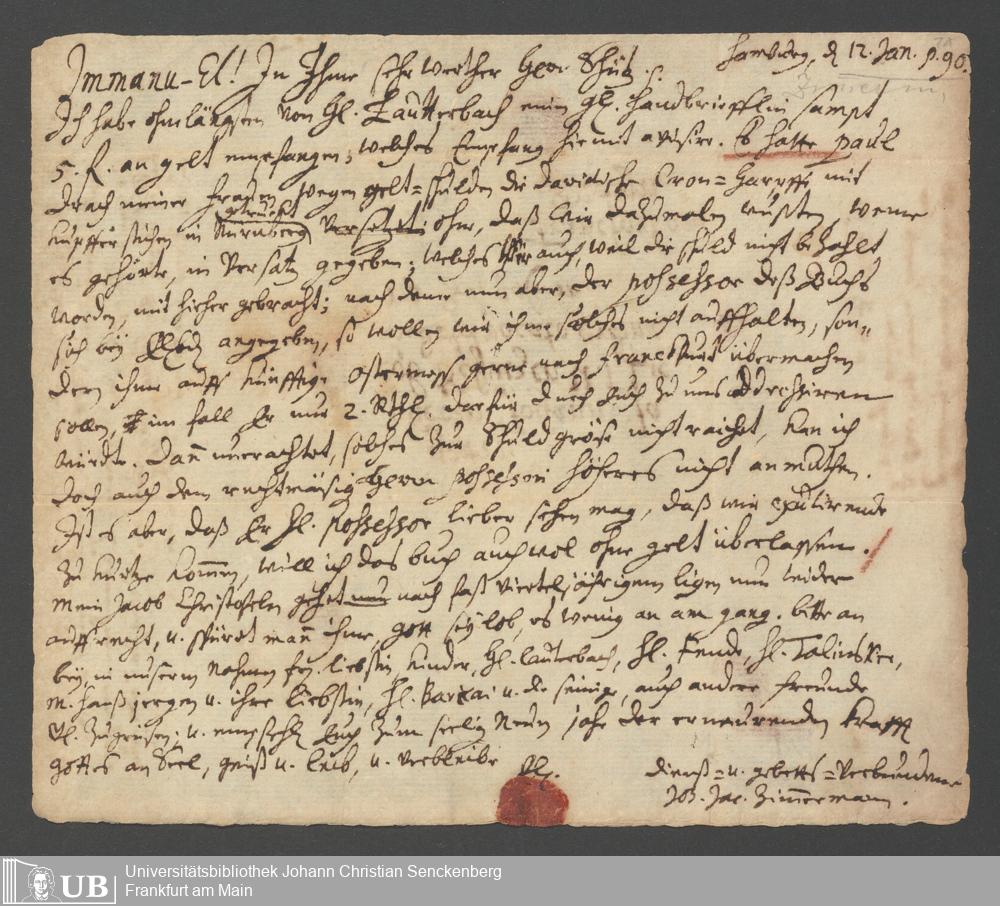 Hamburg, d 12. Jan. p. 90.
Immanu-El! In Ihme sehr werther Herr Schütz.
Ich habe ohnelängsten von Hl. Lautterbach einen gl. Handbriefflin sampt
5. f. an gelt empfangen; welches Empfang hiemit avisire. Es hatte Paul
Drach meiner Frauen wegen gelt=schulden die Davidische Cron=Harpffe mit
Kupfferstichen in Nürnberg getruckt versetzt: ohne, daß wir dazumalen wussten, weme
es gehörte, in Versatz gegeben; welches wir auch, weil die schuld nicht bezahlt
worden, mit hieher gebracht; nach deme nun aber, der possessor deß Buchs
sich bey Euch angegeben, so wollen wir ihme solches nicht auffhalten, son=
dern ihme auffs künfftige Ostermess gerne nach Franckfurt übermachen
sollen, im fall Er nur 2. Rthl. darfür durch Euch zu uns addressiren
würdte. Dann unerachtet, solches zur Schuldgröse nicht raichet, kan ich
doch auch dem rechtmäsig Herrn possessori höheres nicht anmuthen.
Ist es aber, daß Er Hl. possessor lieber sehen mag, daß wir exulirende
zu kurtze kommen, will ich das buch auch wol ohne gelt überlassen.
Mein Jacob Christoffelen gehet nun nach fast vierteljährigem ligen nun wider
auffrecht, u. spüret man ihme, Gott sey lob, es wenig an am gang. bitte an
bey, in unserm Nahmen frn. liebsten Kinder, Hl. Lauterbach, Hl. Fende, Hl.
M. Hanß Jergen u. ihre liebstin, Hl. u. die seinige, auch andere Freunde
zu grüsen; u. empfehle Euch zum seelig Neuen Jahr der erneurenden Krafft
Gottes an Seel, geist u. leib, u. verbleibe
dienst= u. gebetts=verbundener
Joh. Jac. Zimmermann.
UB
Universitätsbibliothek Johann Christian Senckenberg
Frankfurt am Main